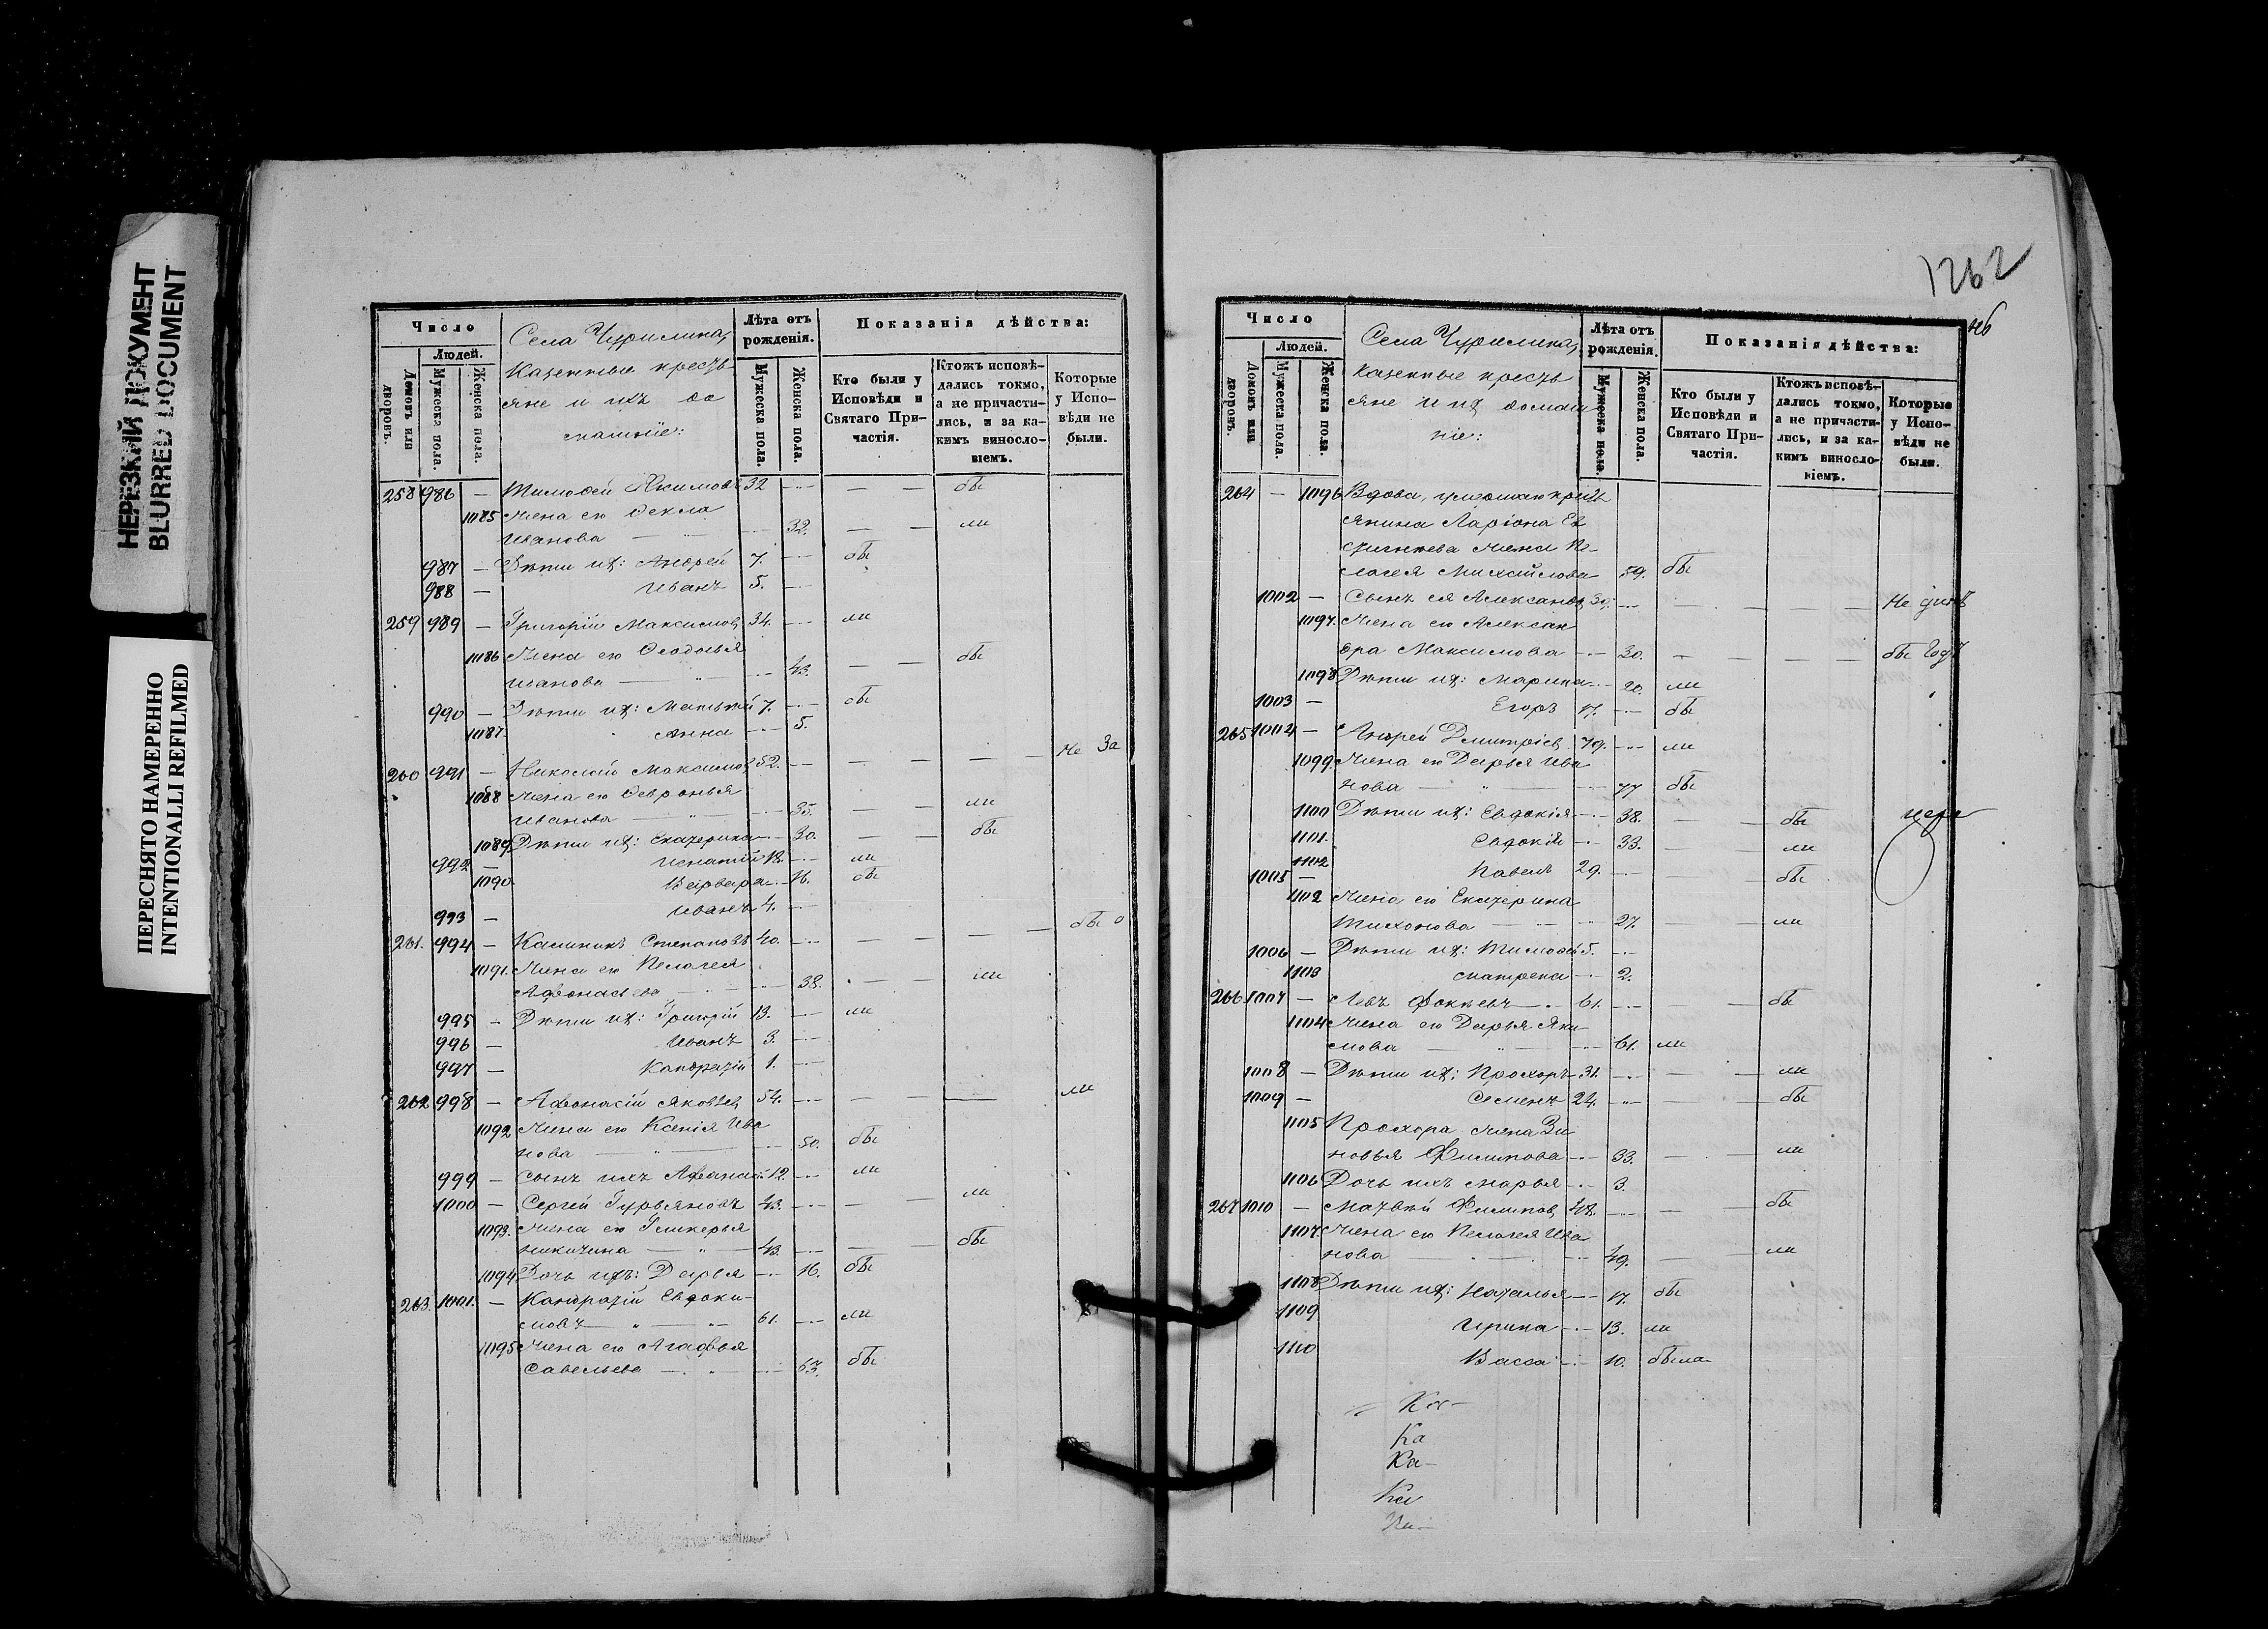 НЕРЕЗКИЙ ДОКУМЕНТ
BLURRED DOCUMENT
ПЕРЕСНЯТО НАМЕРЕННО
INTENTIONALLI REFILMED
Число
Людей.
Домовъ или дворовъ.
Мужеска пола.
Женска пола.
Села Чурилина,
казенные кресть
яне и ихъ до
машніе:
Лѣта отъ рожденія.
Мужеска пола.
Женска пола.
Показанія дѣйства:
Кто были у Исповѣди и Святаго Причастія.
Ктожъ исповѣдались токмо, а не причастились, и за какимъ винословіемъ.
Которые у Исповѣди не были.
258 986 — Тимофей Якимовъ 32 — — — бы
1085 Жена его Фекла
Иванова — 32. — — ли
987 — Дѣти их: Андрей 7. — бы
988 — Иванъ 5. —
259 989 — Григорій Максимов 34. — ли
1086 Жена его Феодосья
Иванова — 43. — — бы
990 — Дѣти их: Матвѣй 7. — бы
1087. Анна — 5.
260 991 — Николай Максимов 52. — — — — — Не За
1088 Жена его Февронья
Иванова — 35. — — ли
1089 Дѣти их: Екатерина — 30. — — бы
992 — Игнатій 18. — ли
1090 Варвара — 16. бы
993 — Иванъ 4. —
261. 994 — Калиникъ Степановъ 40. — — — — — бы о
1091. Жена его Пелагея
Афонасьева — 38. — — ли
995 — Дѣти их: Григорій 13. — ли
996 — Иванъ 3. —
997 — Кондратій 1. —
262 998 — Афонасій Яковлев 54. — — — — ли
1092 Жена его Ксенія Ива
нова — 50. бы
999 — Сынъ ихъ Афанасій 12. — ли
1000 — Сергей Гурьяновъ 43. — — — ли
1093. Жена его Гликерья
Никитина — 43. — — — бы
1094 Дочь ихъ: Дарья — 16. бы
263. 1001. — Кондратій Евдоки-
мовъ — 61. — ли
1095 Жена его Агафья
Савельева — 63. бы
1262
Число
Людей.
Домовъ или дворовъ.
Мужеска пола.
Женска пола.
Села Чурилина,
казенные кресть
яне и их домаш
ніе:
Лѣта отъ рожденія.
Мужеска пола.
Женска пола.
Показанія дѣйства:
Кто были у Исповѣди и Святаго Причастія.
Ктожъ исповѣдались токмо, а не причастились, и за какимъ винословіемъ.
Которые у Исповѣди не были.
264 — 1096 Вдова, умершаго кресть
янина Ларіона Ев
жена Пе-
лагея Михайлова — 59. бы
1002 — Сынъ ея Александр 30. — — — — Не
1097. Жена его Алексан
дра Максимова — 30. — — — — бы
1098 Дѣти их: Марина — 20. ли
1003 — Егоръ 17. — бы
265 1004 — Андрей Дмитріев 79. — ли
1099. Жена его Дарья Ива
нова — 77 бы
1100 Дѣти их: Евдокія — 38. — — бы
1101. Евдокія — 33. — — ли
1102
1005 — Павелъ 29. — — — бы
1102 Жена его Екатерина
Тихонова — 27. — — ли
1006 — Дѣти их: Тимофей 5. —
1103 Матрена — 2.
266 1007 — Левъ Фокѣевъ — 61. — — бы
1104 Жена его Дарья Яки
мова — 61. ли
1008 — Дѣти их: Прохоръ 31. — — — ли
1009 — Семенъ 24. — — — бы
1105 Прохора жена Зи
новья Филипова — 33. — — ли
1106 Дочь ихъ Марья — 3.
267 1010 — Матвѣй Филипов 48. — — бы
1107. Жена его Пелагея Ива
нова — 49. — — ли
1108 Дѣти их: Наталья — 17. бы
1109 Ирина — 13. ли
1110 Васса — 10. была
Ка-
Ка
Ка-
Ка